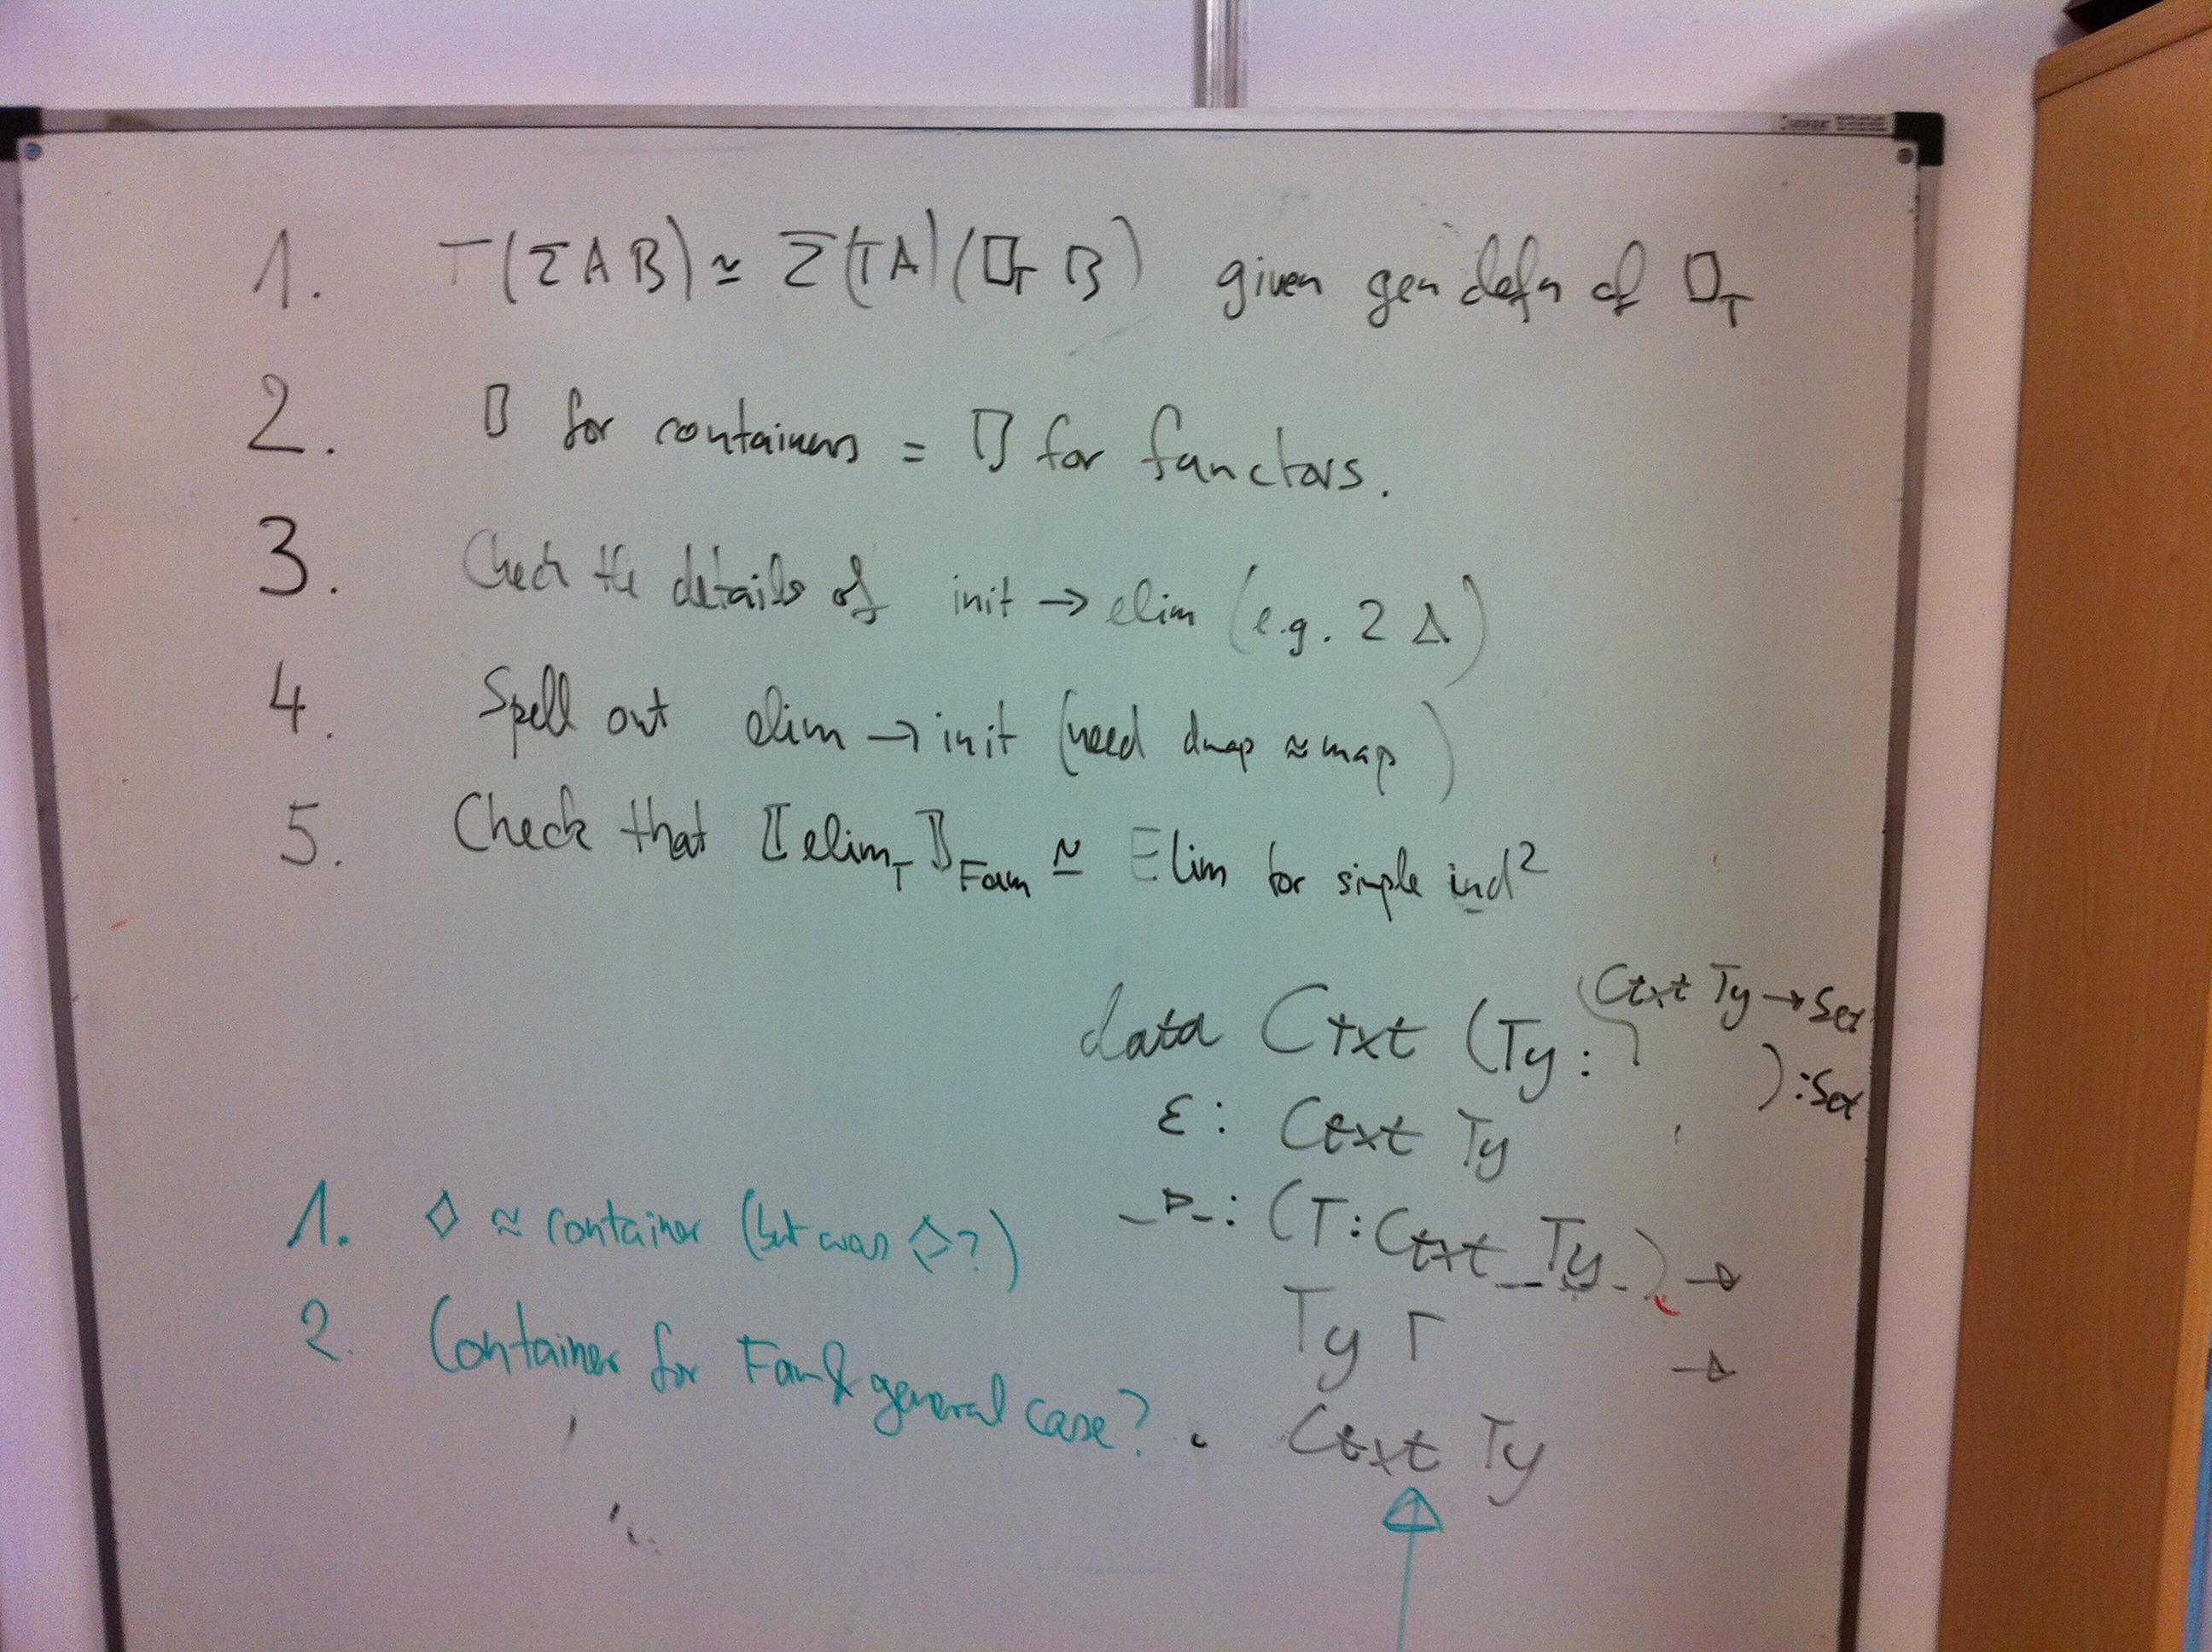 1. T(ΣAB) ≃ Σ(TA)(□_T B) given gen defn of □_T
2. □ for containers = □ for functors.
3. Check the details of init → elim (e.g. 2 Δ)
4. Spell out elim → init (need dmap ≈ map)
5. Check that ⟦elim_T⟧_Fam ≅ Elim for simple ind²
data Ctxt (Ty: Ctxt Ty → Set ):Set
ε: Ctxt Ty
_▷_: (Γ:Ctxt Ty) →
Ty Γ →
Ctxt Ty
1. ◇ ≈ container (but was ◇?)
2. Container for Fam & general case?